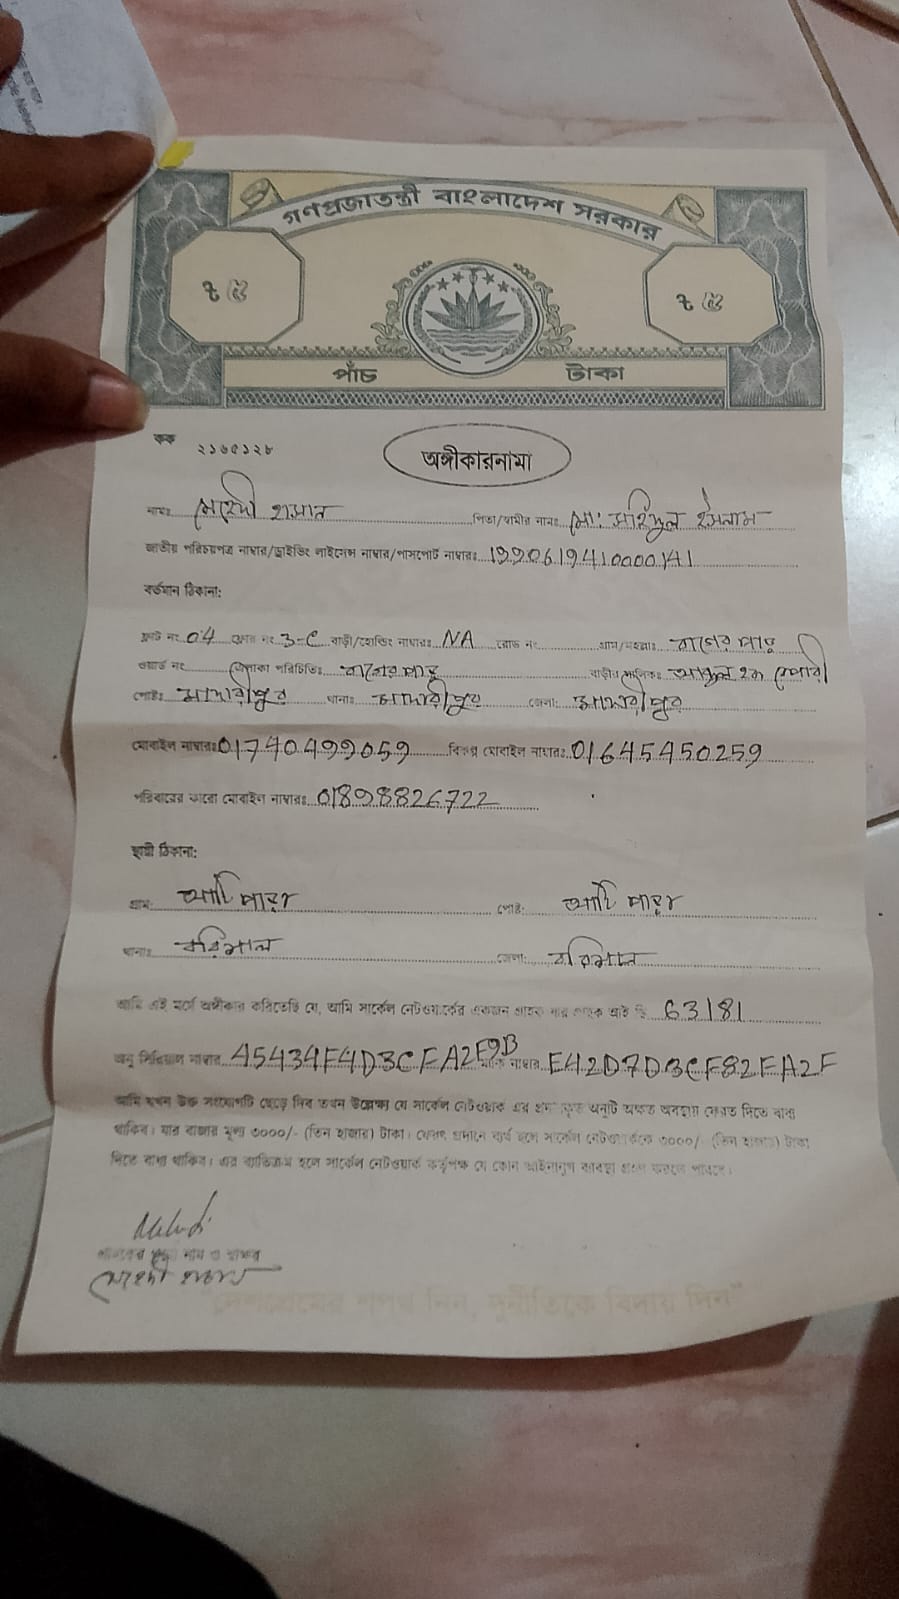 গণপ্রজাতন্ত্রী বাংলাদেশ সরকার
৳ ৫ ৳ ৫
পাঁচ টাকা
কক ২১৬৫১২৮
অঙ্গীকারনামা
নামঃ মেহেদী হাসান পিতা/স্বামীর নামঃ মো: সহিদুল ইসলাম
জাতীয় পরিচয়পত্র নাম্বার/ড্রাইভিং লাইসেন্স নাম্বার/পাসপোর্ট নাম্বারঃ
বর্তমান ঠিকানা:
ফ্লাট নং 04 ফ্লোর নং 3-C বাড়ী/হোল্ডিং নাম্বারঃ NA রোড নং গ্রাম/মহল্লাঃ
ওয়ার্ড নং এলাকা পরিচিতিঃ বাড়ীর মালিকঃ
পোষ্টঃ মাদারীপুর থানাঃ মাদারীপুর জেলা: মাদারীপুর
মোবাইল নাম্বারঃ 01740499059 বিকল্প মোবাইল নাম্বারঃ 01645450259
পরিবারের কারো মোবাইল নাম্বারঃ 01898826722
স্থায়ী ঠিকানা:
গ্রাম: পোষ্ট:
থানাঃ বরিশাল জেলা: বরিশাল
আমি এই মর্মে অঙ্গীকার করিতেছি যে, আমি সার্কেল নেটওয়ার্কের একজন গ্রাহক যার গ্রাহক আই ডি 63181
অনু সিরিয়াল নাম্বার 45434F4D3CFA2F9B ম্যাক নাম্বার E42D7D3CF82FA2F
আমি যখন উক্ত সংযোগটি ছেড়ে দিব তখন উল্লেক্ষ্য যে সার্কেল নেটওয়ার্ক এর প্রদানকৃত অনুটি অক্ষত অবস্থায় ফেরত দিতে বাধ্য
থাকিব। যার বাজার মূল্য ৩০০০/- (তিন হাজার) টাকা। ফেরৎ প্রদানে ব্যর্থ হলে সার্কেল নেটওয়ার্ককে ৩০০০/- (তিন হাজার) টাকা
দিতে বাধ্য থাকিব। এর ব্যতিক্রম হলে সার্কেল নেটওয়ার্ক কর্তৃপক্ষ যে কোন আইনানুগ ব্যবস্থা গ্রহণ করতে পারবে।
গ্রাহকের পূর্ণ নাম ও স্বাক্ষর
মেহেদী হাসান
"দেশপ্রেমের শপথ নিন, দুর্নীতিকে বিদায় দিন"